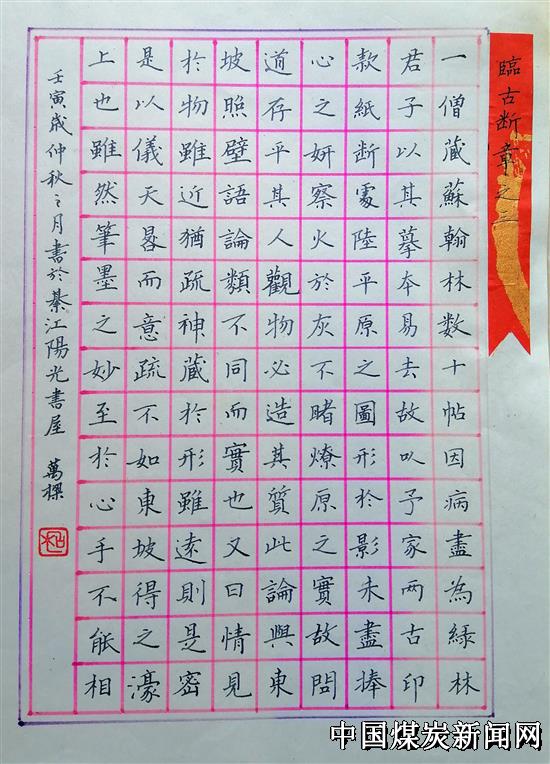 臨古断章之二
一僧藏蘇翰林数十帖因病盡為緑林
君子以其摹本易去故㕥予家兩古印
款紙断處陸平原之圖形於影未盡捧
心之妍察火於灰不睹燎原之實故問
道存乎其人觀物必造其質此論與東
坡照壁語論類不同而實也又曰情見
於物雖近猶疏神藏於形雖遠則是密
是以儀天晷而意疏不如東坡得之濠
上也雖然筆墨之妙至於心手不能相
壬寅歲仲秋之月書於綦江陽光書屋 萬
中国煤炭新闻网